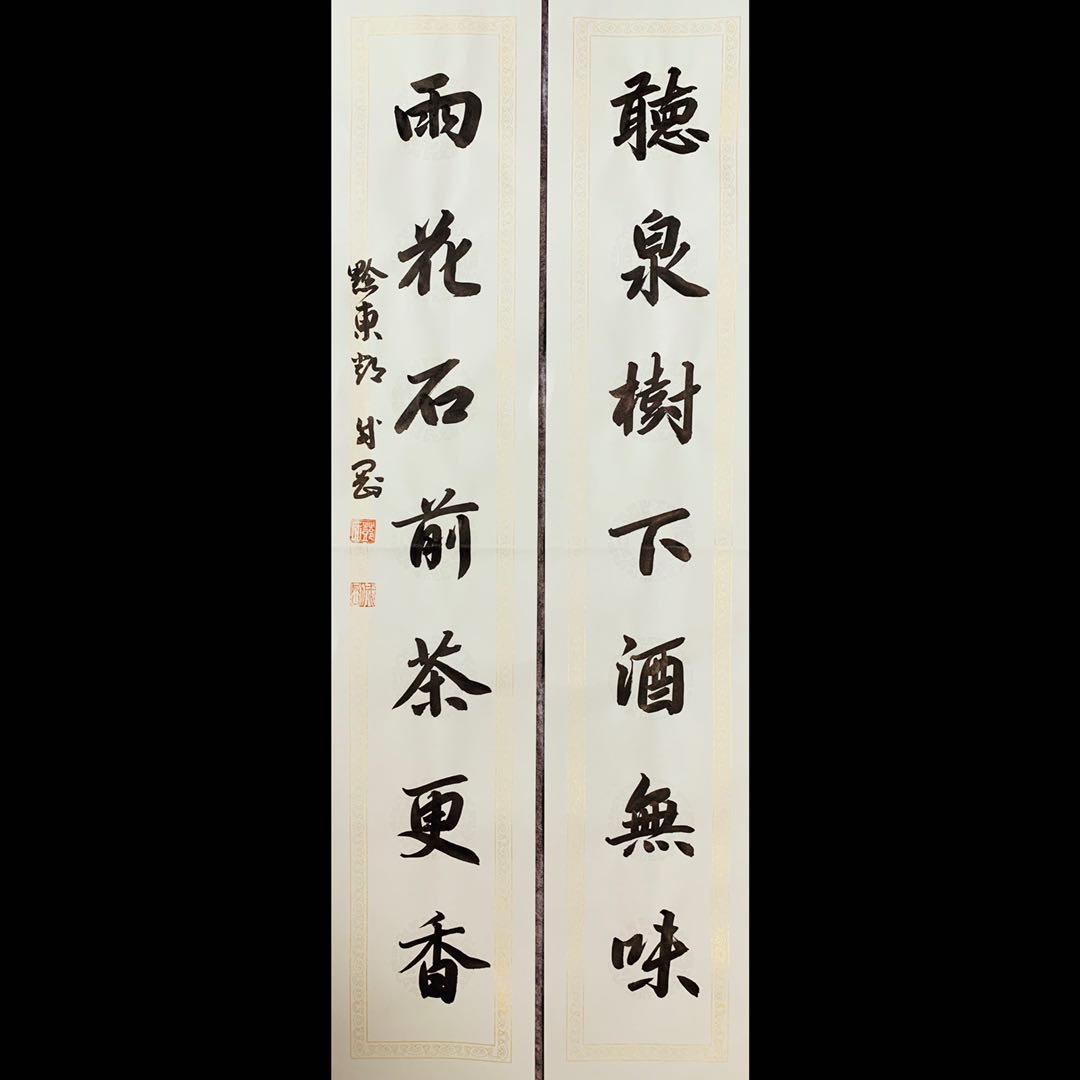 聽泉樹下酒無味
雨花石前茶更香
黔東鄧成罡